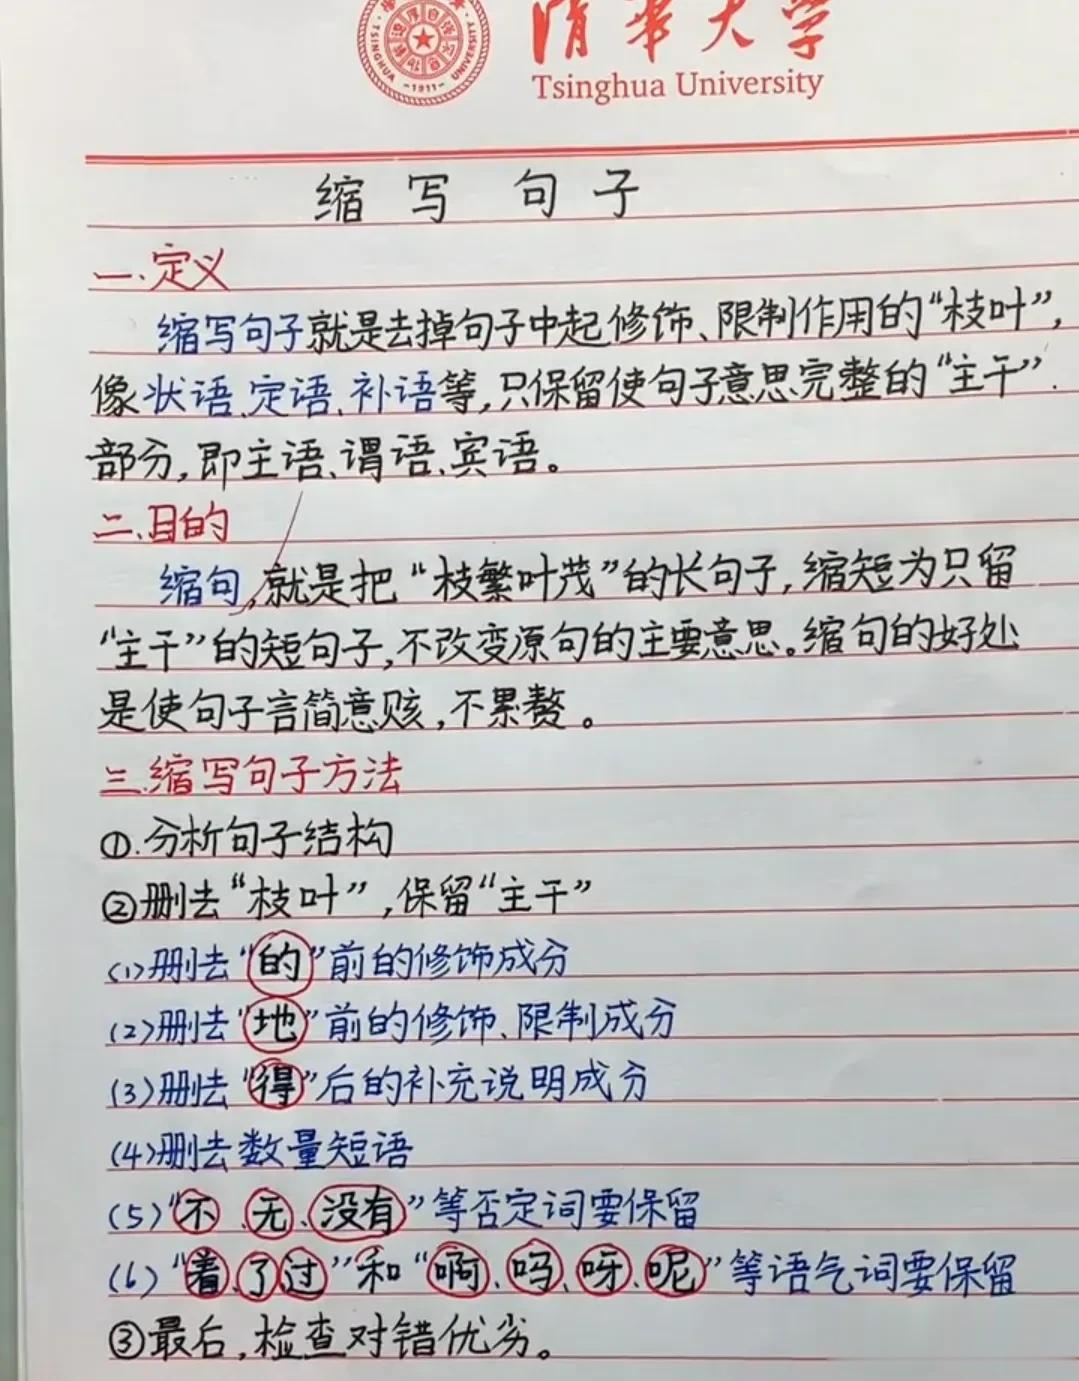 TSINGHUA UNIVERSITY
-1911-
清华大学
Tsinghua University
缩写句子
一.定义
缩写句子就是去掉句子中起修饰、限制作用的“枝叶”,
像状语、定语、补语等,只保留使句子意思完整的“主干”
部分,即主语、谓语、宾语。
二.目的
缩句,就是把“枝繁叶茂”的长句子,缩短为只留
“主干”的短句子,不改变原句的主要意思。缩句的好处
是使句子言简意赅,不累赘。
三.缩写句子方法
①.分析句子结构
②删去“枝叶”,保留“主干”
(1)删去“的”前的修饰成分
(2)删去“地”前的修饰、限制成分
(3)删去“得”后的补充说明成分
(4)删去数量短语
(5)“不、无、没有”等否定词要保留
(6)“着、了、过”和“啊、吗、呀、呢”等语气词要保留
③最后,检查对错优劣。